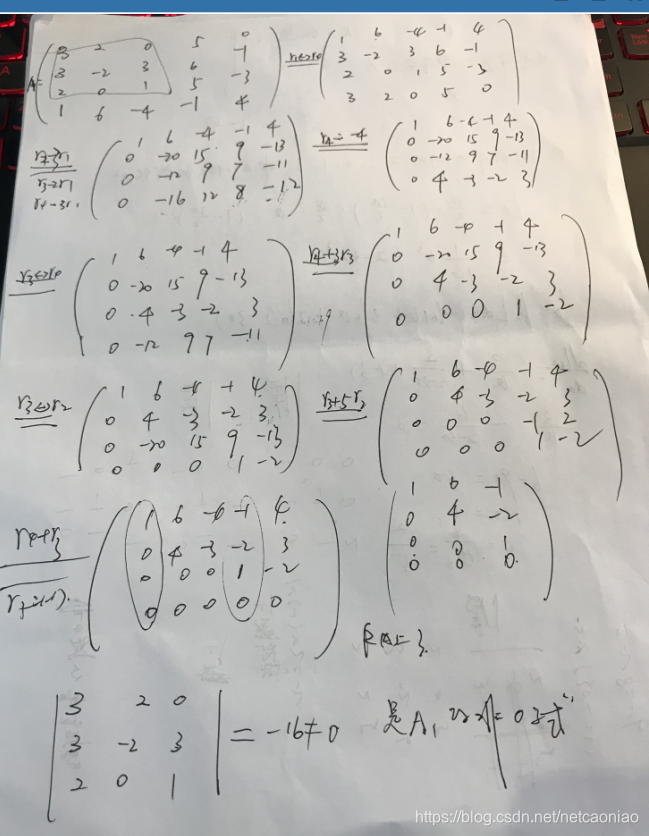 A= ( 3 2 0 5 0
3 -2 3 6 -1
2 0 1 5 -3
1 6 -4 -1 4 )
( 1 6 -4 -1 4
3 -2 3 6 -1
2 0 1 5 -3
3 2 0 5 0 )
r3-2r1
( 1 6 -4 -1 4
0 -20 15 9 -13
0 -12 9 7 -11
0 -16 12 8 -12 )
r4÷-4
( 1 6 -4 -1 4
0 -20 15 9 -13
0 -12 9 7 -11
0 4 -3 -2 3 )
r3↔r4
( 1 6 -4 -1 4
0 -20 15 9 -13
0 4 -3 -2 3
0 -12 9 7 -11 )
r4+3r3
( 1 6 -4 -1 4
0 -20 15 9 -13
0 4 -3 -2 3
0 0 0 1 -2 )
r3↔r2
( 1 6 -4 -1 4
0 4 -3 -2 3
0 -20 15 9 -13
0 0 0 1 -2 )
r3+5r2
( 1 6 -4 -1 4
0 4 -3 -2 3
0 0 0 -1 2
0 0 0 1 -2 )
r4+r3
( 1 6 -4 -1 4
0 4 -3 -2 3
0 0 0 1 -2
0 0 0 0 0 )
( 1 6 -1
0 4 -2
0 0 1
0 0 0 )
RA=3.
| 3 2 0
3 -2 3
2 0 1 | = -16≠0 是A,
https://blog.csdn.net/netcaoniao